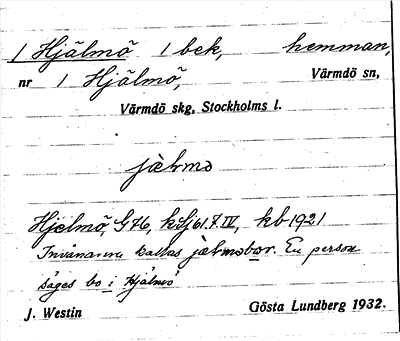 1 Hjälmö 1 bek, hemman,
nr 1 Hjälmö, Värmdö sn,
Värmdö skg, Stockholms l.
jælmə
Hjelmö, G76, kSj 61.7.IV, kb 1921
Invånarna kallas jælməbor. En person
säges bo i Hjälmö
J. Westin Gösta Lundberg 1932.